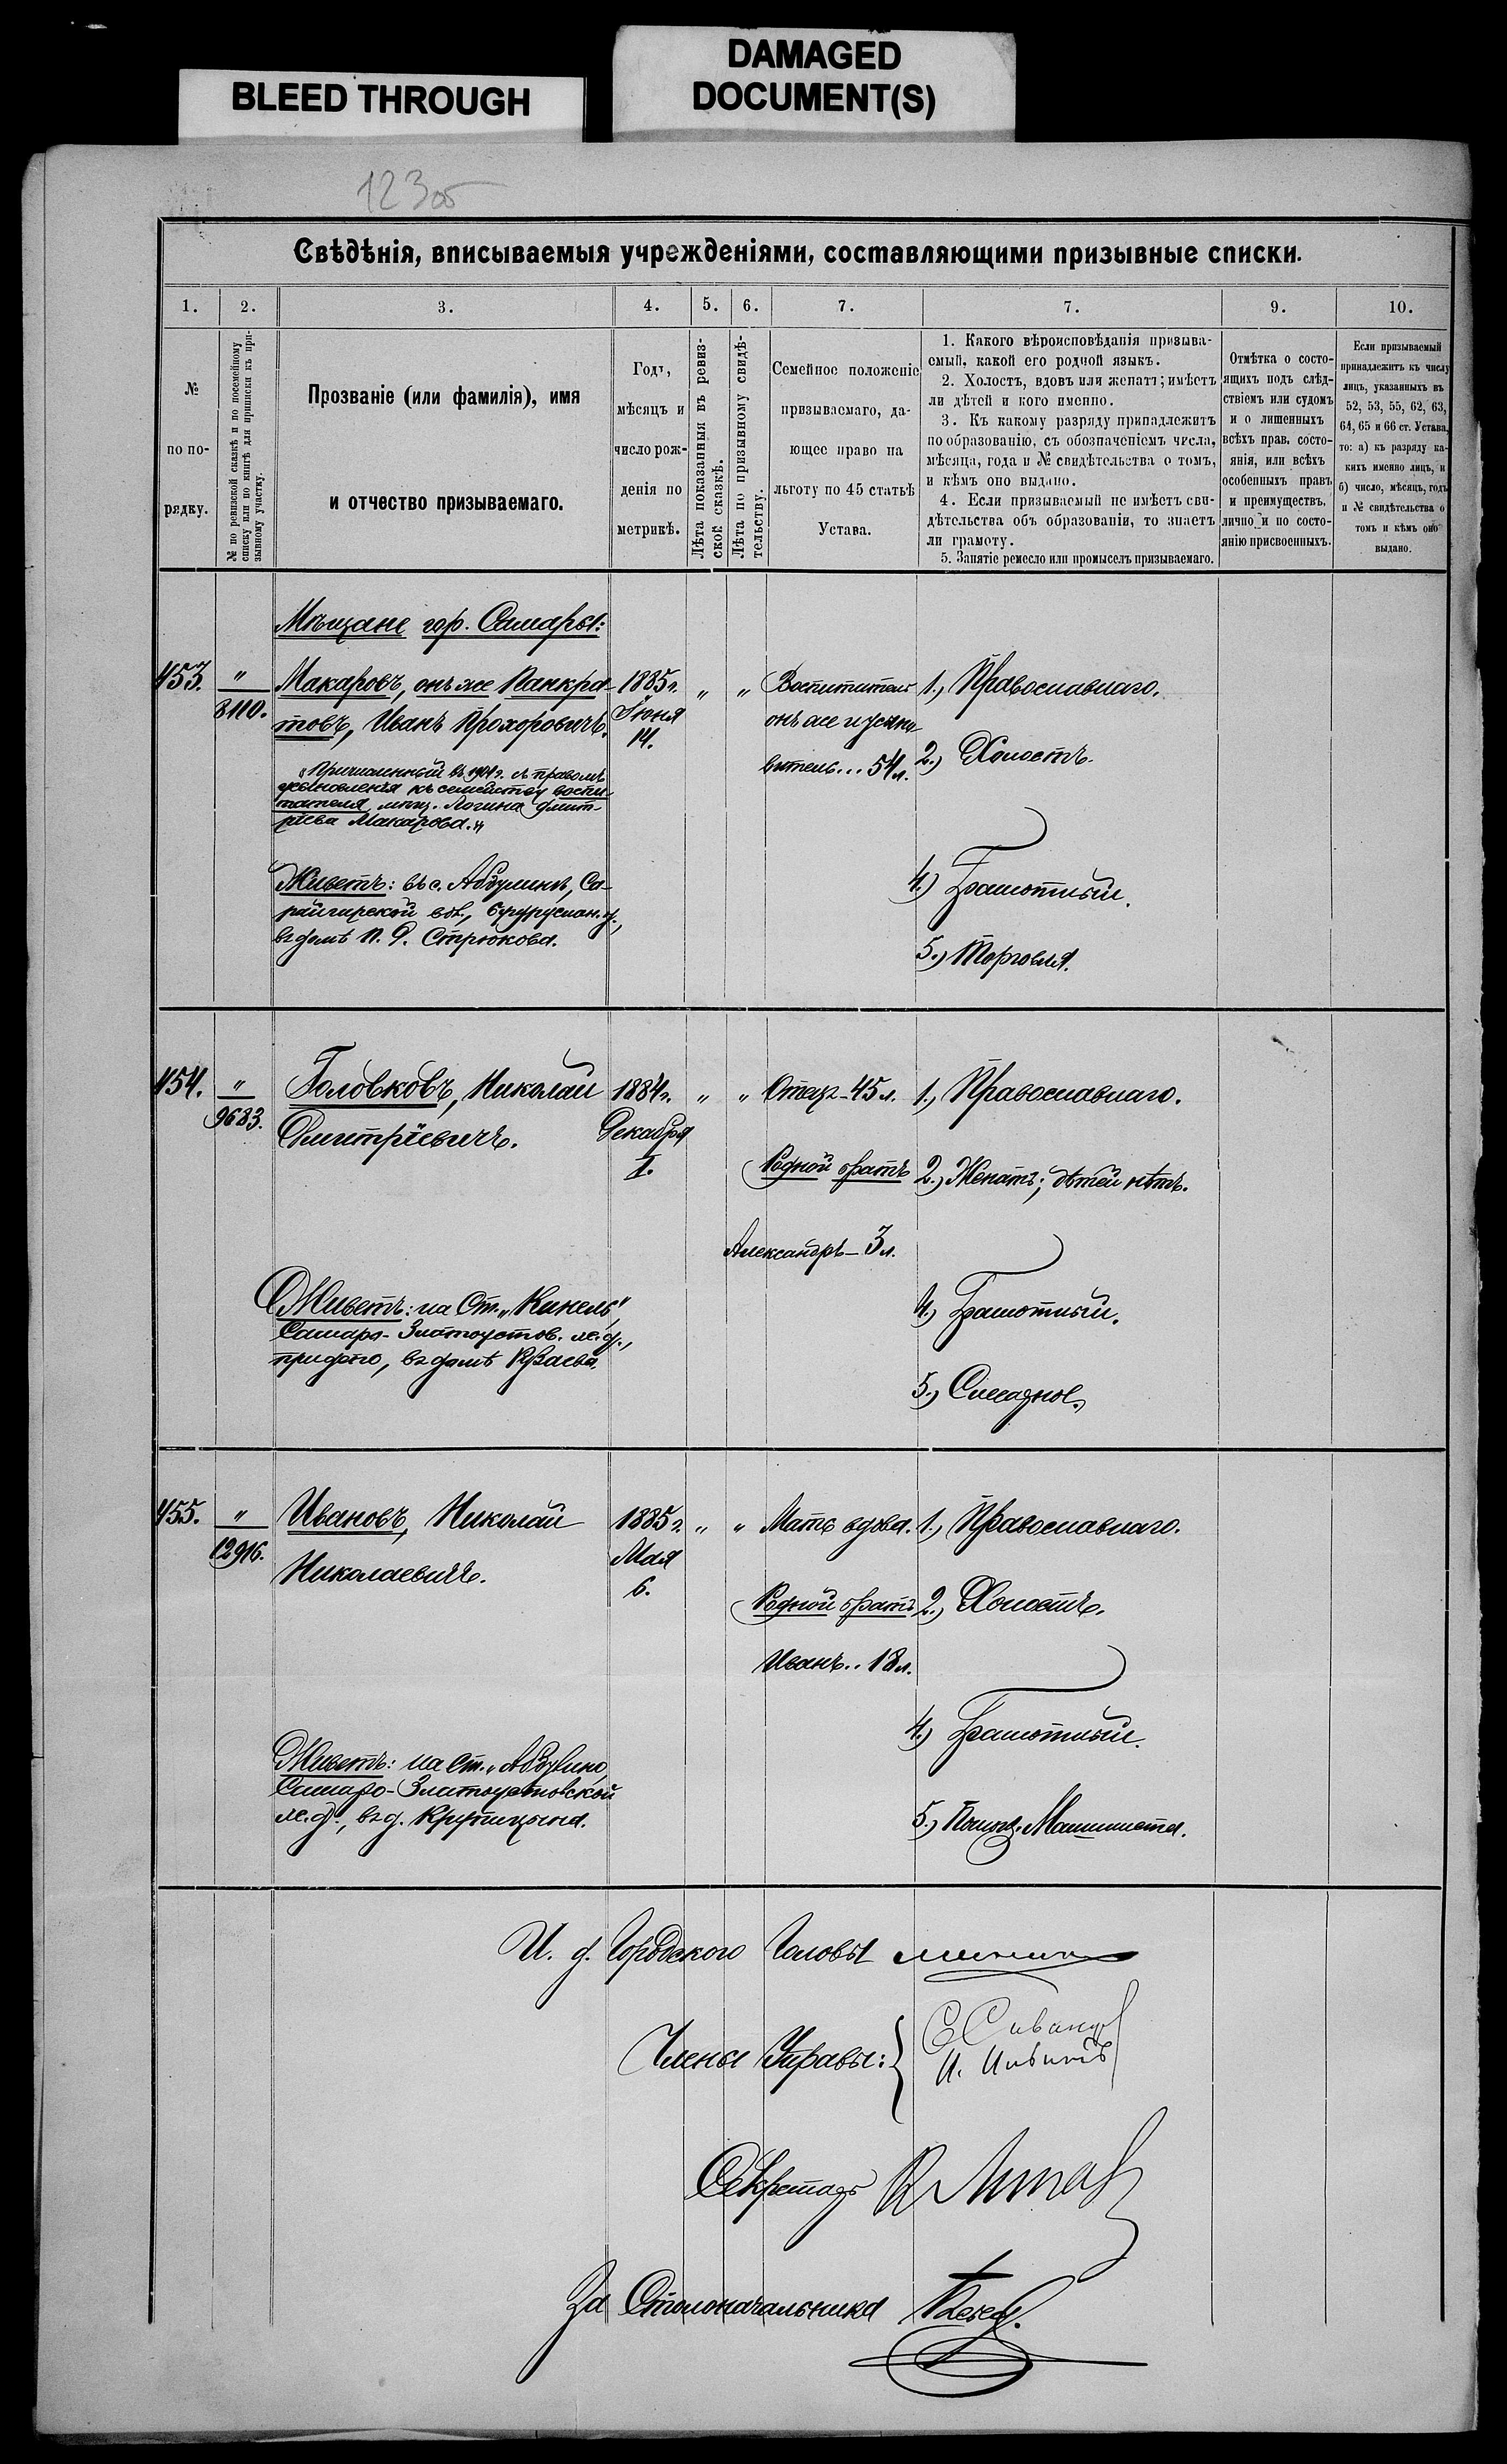 BLEED THROUGH
DAMAGED
DOCUMENT(S)
123об
Свѣдѣнія, вписываемыя учрежденіями, составляющими призывные списки.
1. 2. 3. 4. 5. 6. 7. 7. 9. 10.
№
по по-
рядку.
№ по ревизской сказкѣ и по посемейному
списку или по книгѣ для приписки къ при-
зывному участку.
Прозваніе (или фамилія), имя
и отчество призываемаго.
Годъ,
мѣсяцъ и
число рож-
денія по
метрикѣ.
Лѣта показанныя въ ревиз-
ской сказкѣ.
Лѣта по призывному свидѣ-
тельству.
Семейное положеніе
призываемаго, да-
ющее право на
льготу по 45 статьѣ
Устава.
1. Какого вѣроисповѣданія призыва-
емый, какой его родной языкъ.
2. Холостъ, вдовъ или женатъ; имѣетъ
ли дѣтей и кого именно.
3. Къ какому разряду принадлежитъ
по образованію, съ обозначеніемъ числа,
мѣсяца, года и № свидѣтельства о томъ,
и кѣмъ оно выдано.
4. Если призываемый не имѣетъ сви-
дѣтельства объ образованіи, то знаетъ
ли грамоту.
5. Занятіе ремесло или промыселъ призываемаго.
Отмѣтка о состо-
ящихъ подъ слѣд-
ствіемъ или судомъ
и о лишенныхъ
всѣхъ правъ состо-
янія, или всѣхъ
особенныхъ правъ
и преимуществъ,
лично и по состо-
янію присвоенныхъ.
Если призываемый
принадлежитъ къ числу
лицъ, указанныхъ въ
52, 53, 55, 62, 63,
64, 65 и 66 ст. Устава,
то: а) къ разряду ка-
кихъ именно лицъ, и
б) число, мѣсяцъ, годъ
и № свидѣтельства о
томъ и кѣмъ оно
выдано.
Мѣщане гор. Самары:
453. " 8110.
Макаровъ, онъ же Панкра-
товъ, Иванъ Прохоровичъ.
„Причисленный въ 1904 г. съ правомъ
усыновленія къ семейству воспи-
тателя, мѣщ. Логина Дмит-
ріева Макарова."
Живетъ: въ с. Абдулинѣ, Са-
райгирской вол., Бугуруслан. у.,
въ домѣ П. Ф. Стрюкова.
1885 г.
Іюня
14.
" "
Воспитатель
онъ же и усыно
витель... 54 л.
1.) Православнаго.
2.) Холостъ.
4.) Грамотный.
5.) Торговля.
454. " 9683.
Головковъ, Николай
Дмитріевичъ.
Живетъ: на Ст. „Кинель"
Самаро-Златоустов. ж. д.,
1884 г.
Декабря
1.
" "
Отецъ - 45 л.
Родной братъ
Александръ - 3 л.
1.) Православнаго.
2.) Женатъ; дѣтей нѣтъ.
4.) Грамотный.
5.)
455. " 12916.
Ивановъ, Николай
Николаевичъ.
Живетъ: на Ст. „Абдулино,
Самаро-Златоустовской
ж. д., въ д. Крупицына.
1885 г.
Мая
6.
" "
Мать вдова.
Родной братъ
Иванъ.. 18 л.
1.) Православнаго.
2.) Холостъ.
4.) Грамотный.
5.) Помощ. Машиниста.
И. д. Городского Головы
Члены Управы:
Секретарь
За Столоначальника